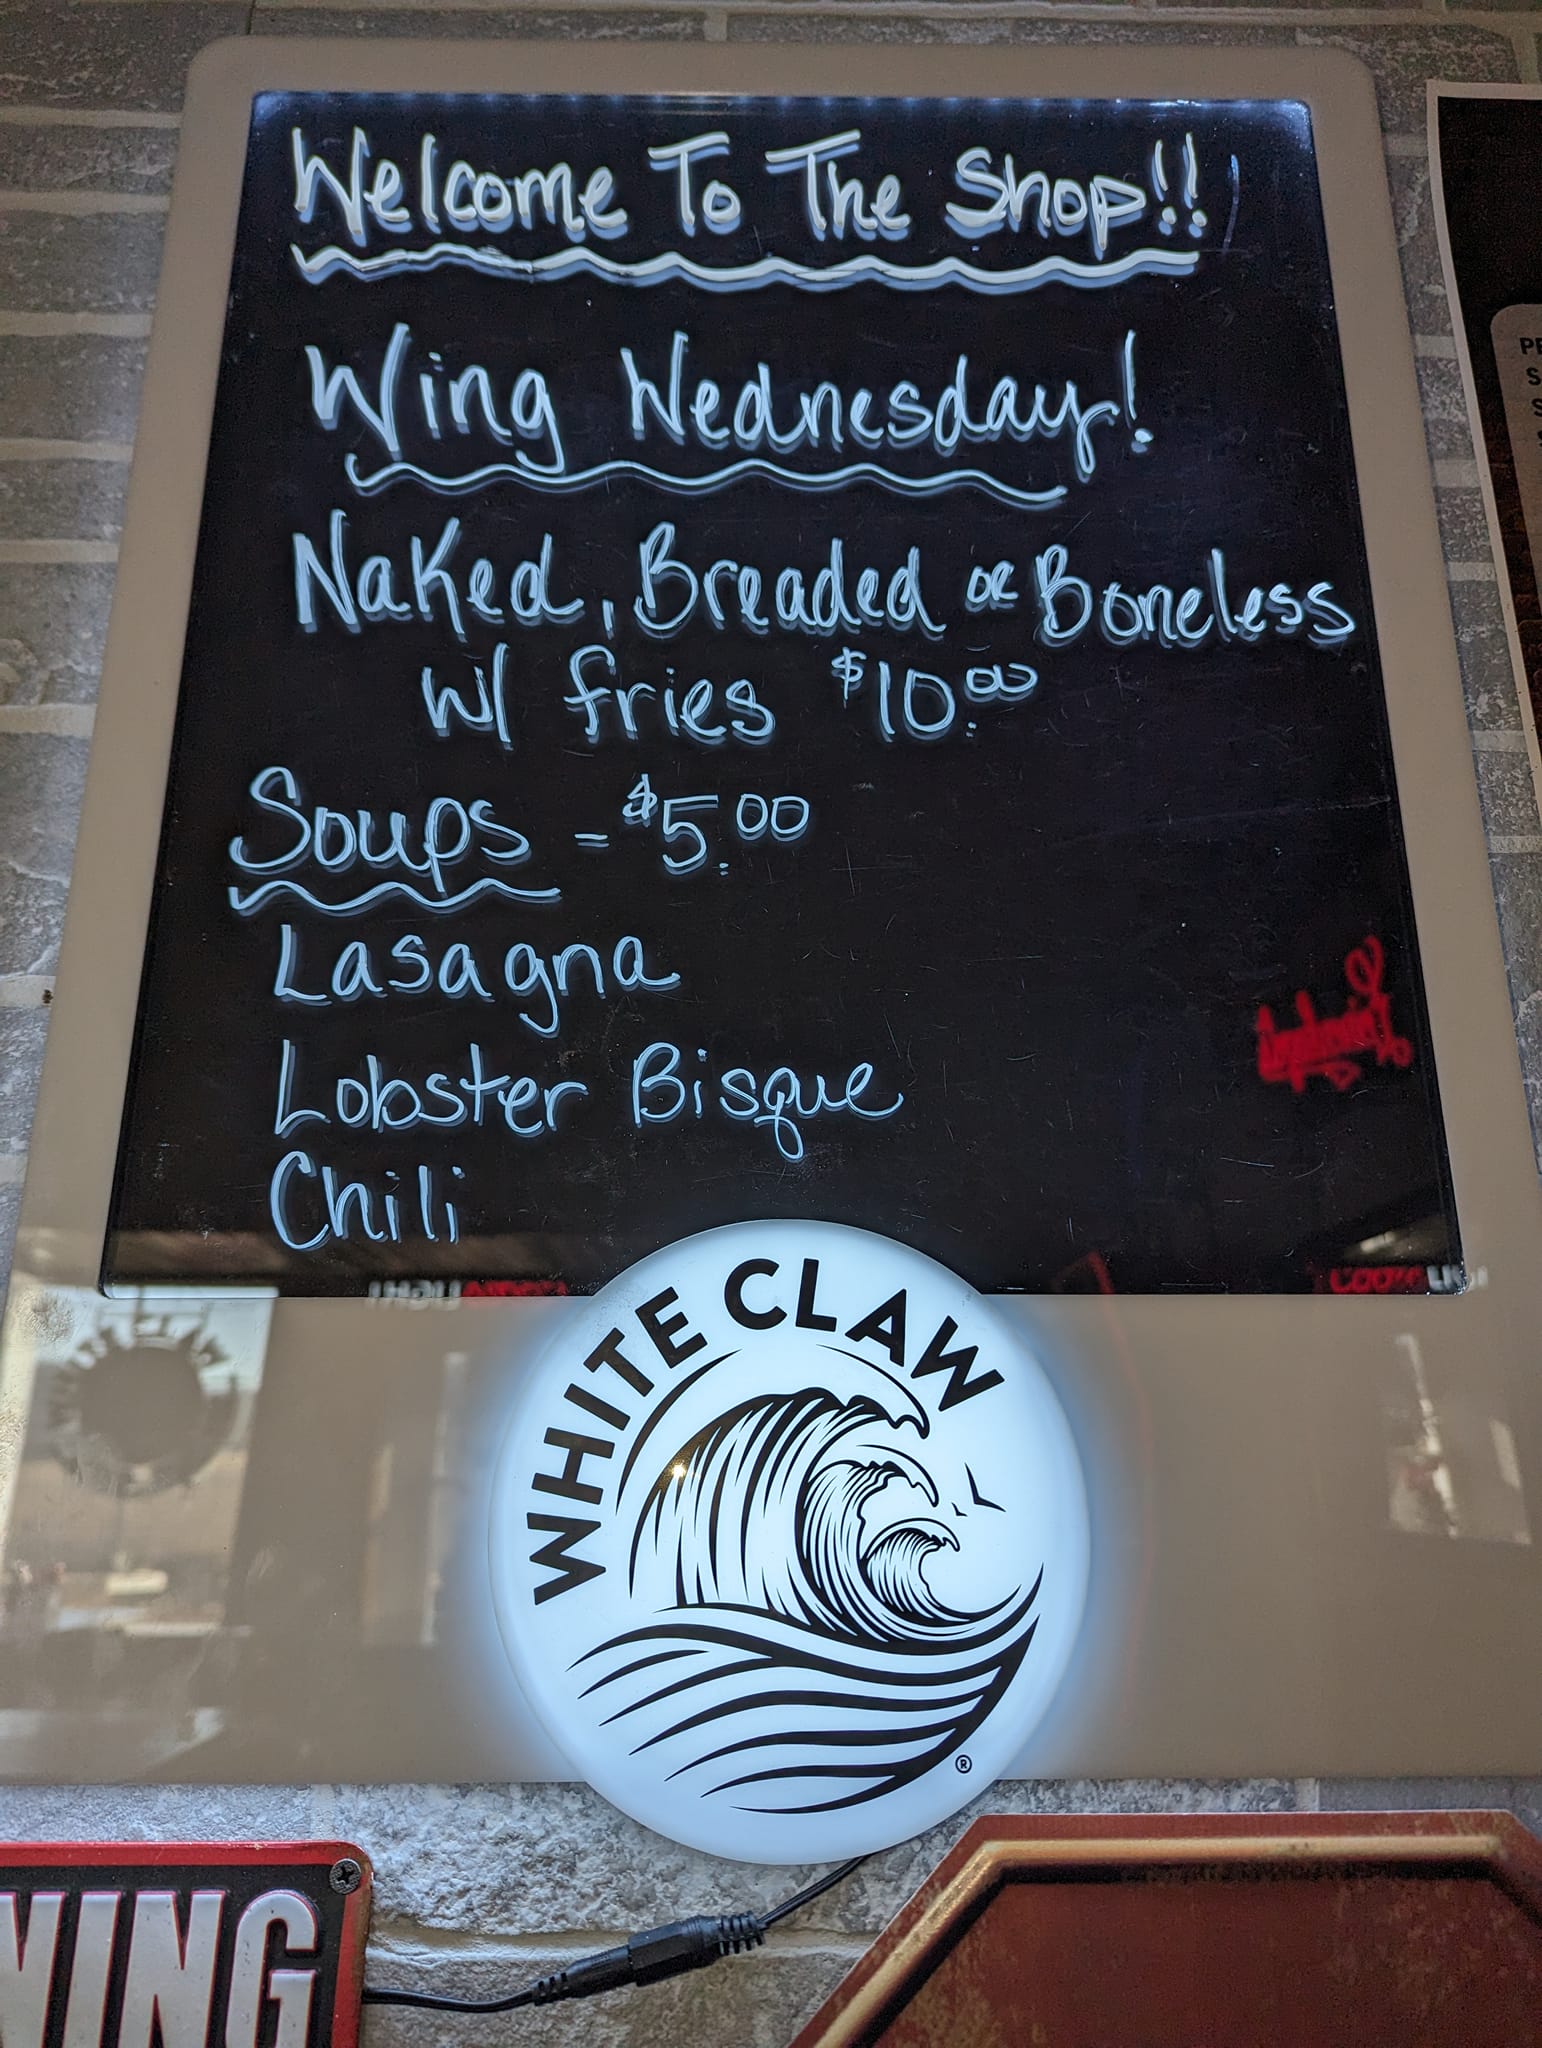 Welcome To The Shop!!
Wing Wednesday!
Naked, Breaded or Boneless
w/ fries $10.00
Soups = $5.00
Lasagna
Lobster Bisque
Chili
WHITE CLAW
®
NING